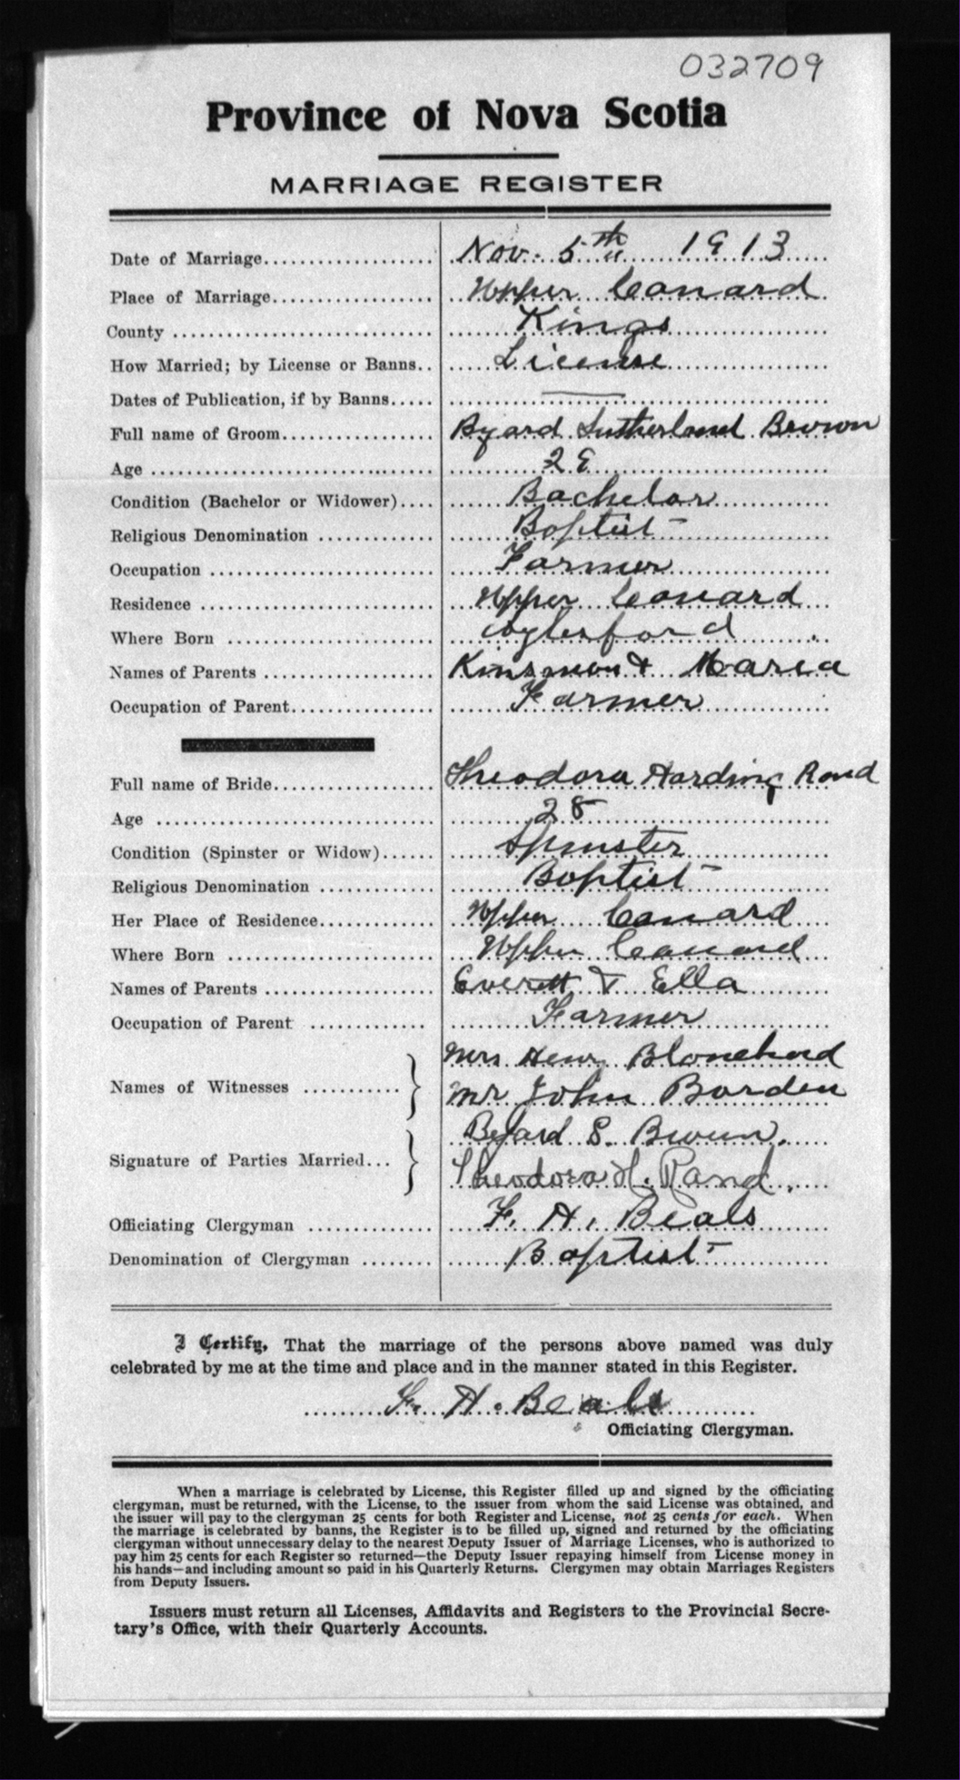 032709
Province of Nova Scotia
MARRIAGE REGISTER
Date of Marriage.................... Nov. 5th 1913
Place of Marriage.................. Upper Canard
County ............................ Kings
How Married; by License or Banns.. License
Dates of Publication, if by Banns..... —
Full name of Groom................. Byard Sutherland Brown
Age ............................... 29
Condition (Bachelor or Widower).... Bachelor
Religious Denomination ............. Baptist
Occupation ........................ Farmer
Residence ......................... Upper Canard
Where Born ....................... Aylesford
Names of Parents .................. Kinsman & Maria
Occupation of Parent................ Farmer
Full name of Bride.................. Theodora Harding Rand
Age ............................... 28
Condition (Spinster or Widow)...... Spinster
Religious Denomination ............. Baptist
Her Place of Residence.............. Upper Canard
Where Born ....................... Upper Canard
Names of Parents .................. Everett & Ella
Occupation of Parent .............. Farmer
Mrs Henry Blanchard
Names of Witnesses ........... } Mr John Borden
Byard S. Brown.
Signature of Parties Married... } Theodora H. Rand.
Officiating Clergyman .............. F. H. Beals
Denomination of Clergyman ........ Baptist
I Certify, That the marriage of the persons above named was duly
celebrated by me at the time and place and in the manner stated in this Register.
F. H. Beals
Officiating Clergyman.
When a marriage is celebrated by License, this Register filled up and signed by the officiating
clergyman, must be returned, with the License, to the issuer from whom the said License was obtained, and
the issuer will pay to the clergyman 25 cents for both Register and License, not 25 cents for each. When
the marriage is celebrated by banns, the Register is to be filled up, signed and returned by the officiating
clergyman without unnecessary delay to the nearest Deputy Issuer of Marriage Licenses, who is authorized to
pay him 25 cents for each Register so returned—the Deputy Issuer repaying himself from License money in
his hands—and including amount so paid in his Quarterly Returns. Clergymen may obtain Marriages Registers
from Deputy Issuers.
Issuers must return all Licenses, Affidavits and Registers to the Provincial Secre-
tary's Office, with their Quarterly Accounts.